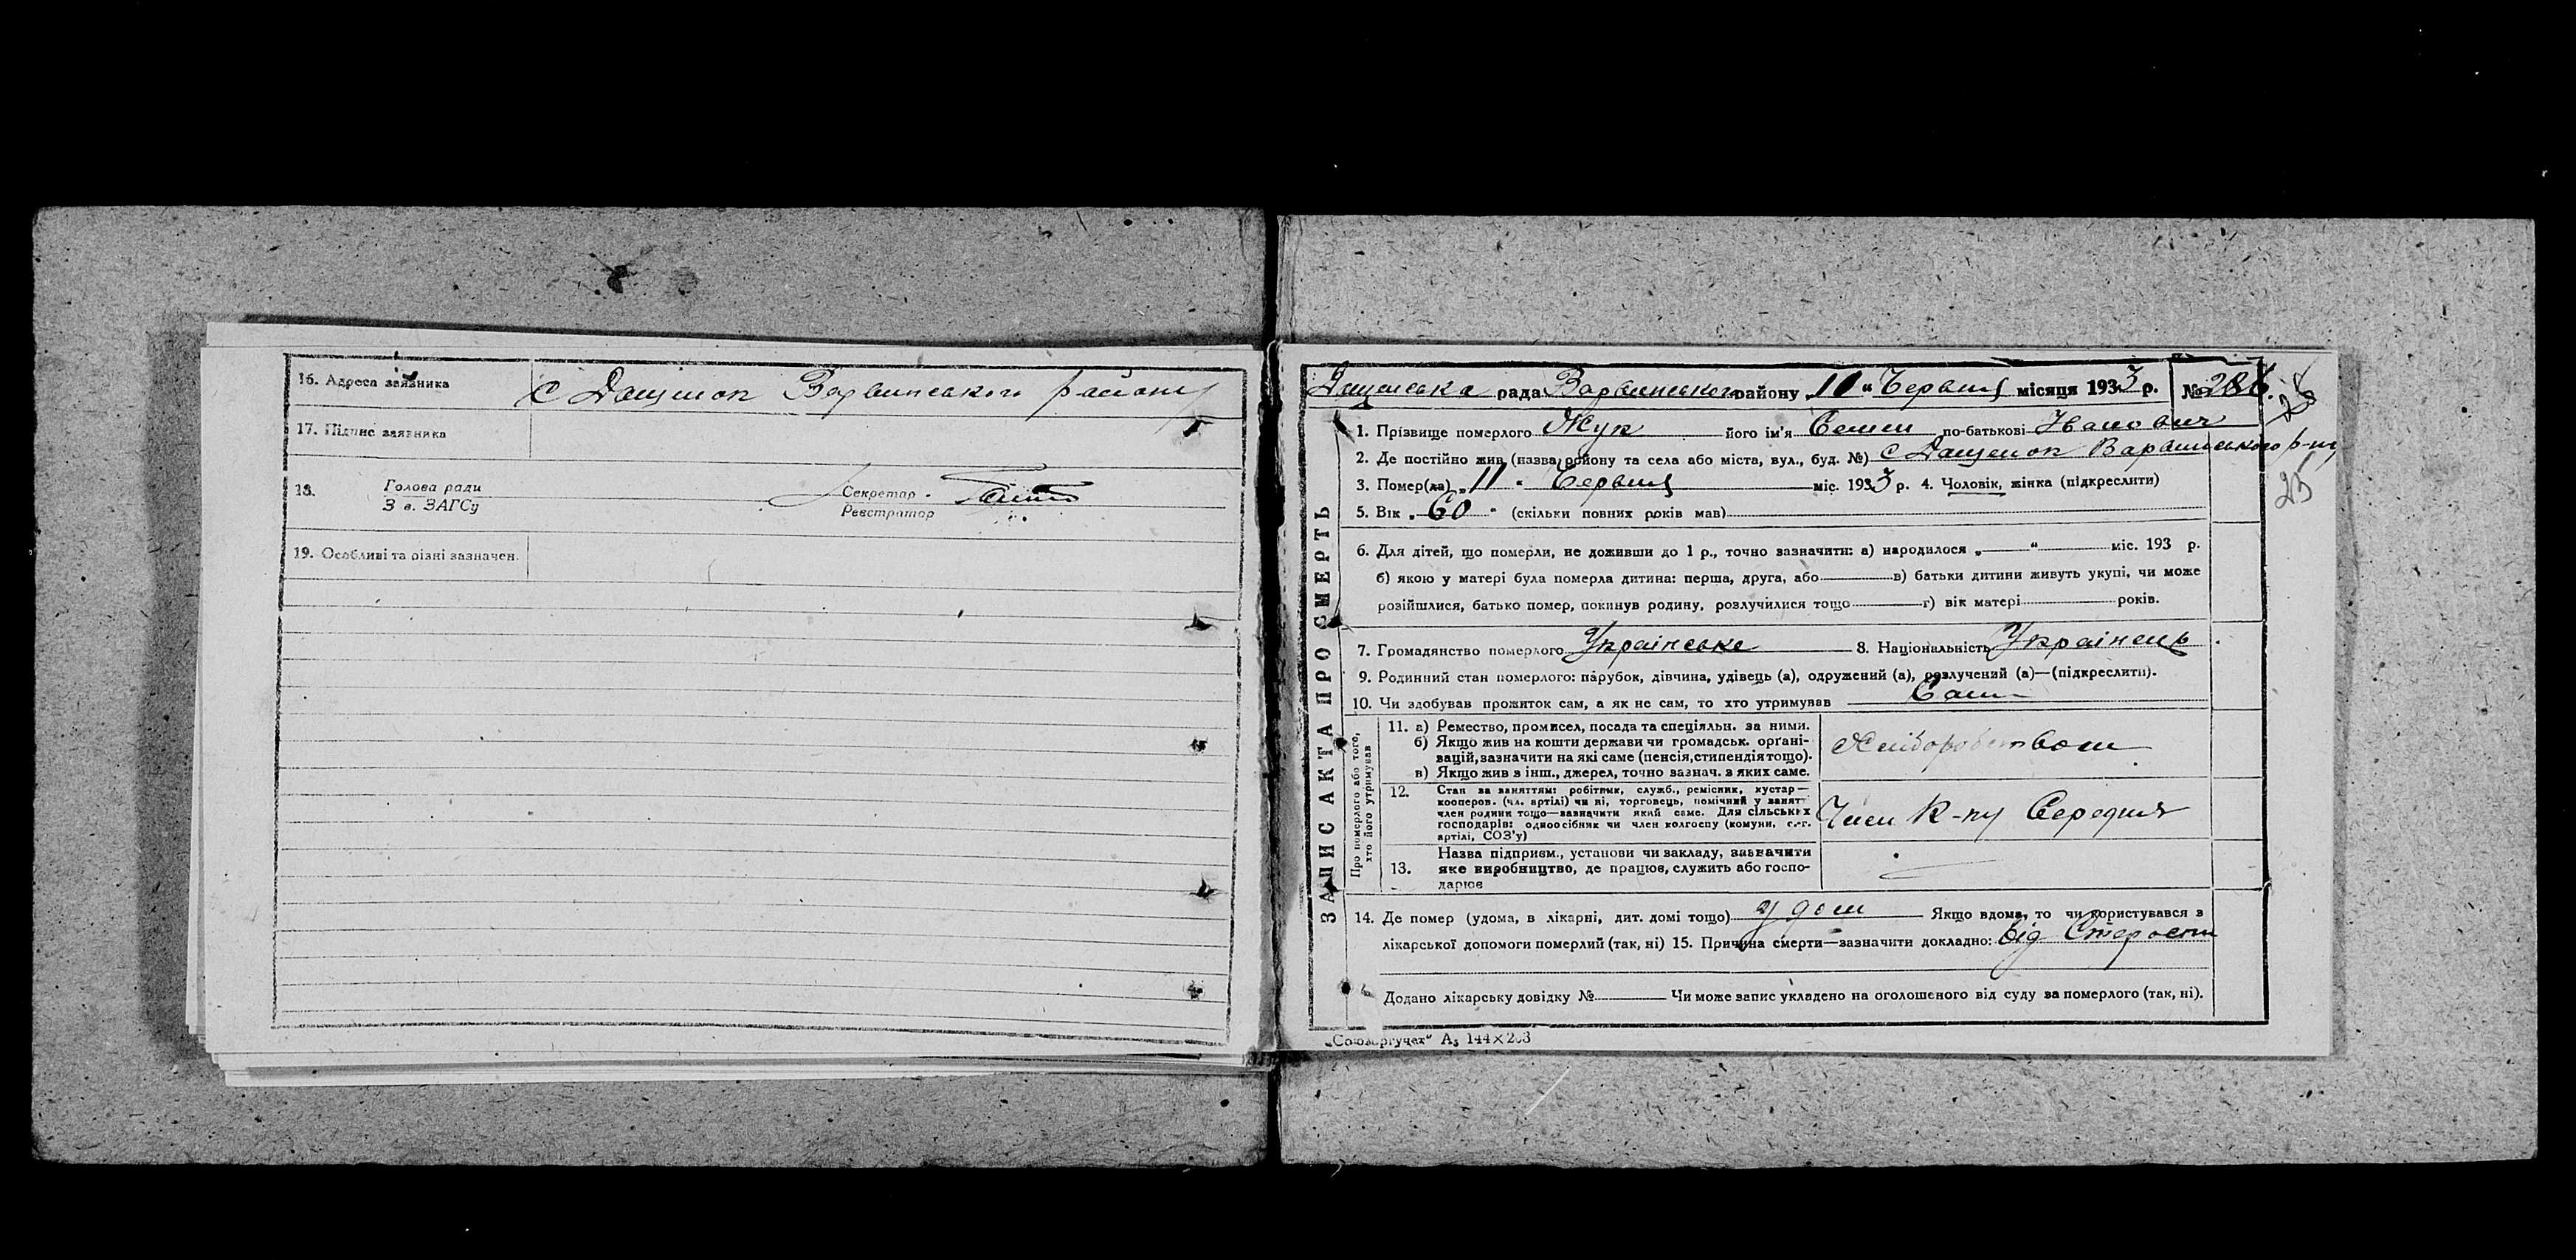 16. Адреса заявника с Дащенок Варвинського району
17. Підпис заявника
18. Голова ради Секретар
З в. ЗАГСу Реєстратор
19. Особливі та різні зазначен.
Дащенська рада Варвинського району „10“ Червня місяця 1933 р. №
28
1. Прізвище померлого Жук його ім'я Семен по-батькові Іванович
2. Де постійно жив (назва району та села або міста, вул., буд. №) с Дащенок Варвинського р-ну
3. Помер(ла) „11“ Червня міс. 1933 р. 4. Чоловік, жінка (підкреслити)
25
5. Вік „60“ (скільки повних років мав)
6. Для дітей, що померли, не доживши до 1 р., точно зазначити: а) народилося „ “ міс. 193 р.
б) якою у матері була померла дитина: перша, друга, або в) батьки дитини живуть укупі, чи може
розійшлися, батько помер, покинув родину, розлучилися тощо г) вік матері років.
7. Громадянство померлого Українське 8. Національність Українець
9. Родинний стан померлого: парубок, дівчина, удівець (а), одружений (а), розлучений (а)—(підкреслити).
10. Чи здобував прожиток сам, а як не сам, то хто утримував Сам
ЗАПИС АКТА ПРО СМЕРТЬ
Про померлого або того,
хто його утримував
11. а) Ремество, промисел, посада та спеціяльн. за ними.
б) Якщо жив на кошти держави чи громадськ. органі-
зацій, зазначити на які саме (пенсія, стипендія тощо).
в) Якщо жив з інш., джерел, точно зазнач. з яких саме.
Хліборобством
12. Стан за заняттям: робітник, служб., ремісник, кустар—
кооперов. (чл. артілі) чи ні, торговець, помічний у занят
член родини тощо—зазначити який саме. Для сільських
господарів: одноосібник чи член колгоспу (комуни, с.-г.
артілі, СОЗ'у)
Член К-пу Середняк
13. Назва підприєм., установи чи закладу, зазначити
яке виробництво, де працює, служить або госпо-
дарює
14. Де помер (удома, в лікарні, дит. домі тощо) у дом Якщо вдома, то чи користувався з
лікарської допомоги померлий (так, ні) 15. Причина смерти—зазначити докладно: від Старости
Додано лікарську довідку № Чи може запис укладено на оголошеного від суду за померлого (так, ні).
„Союзоргучет“ А₅ 144×203